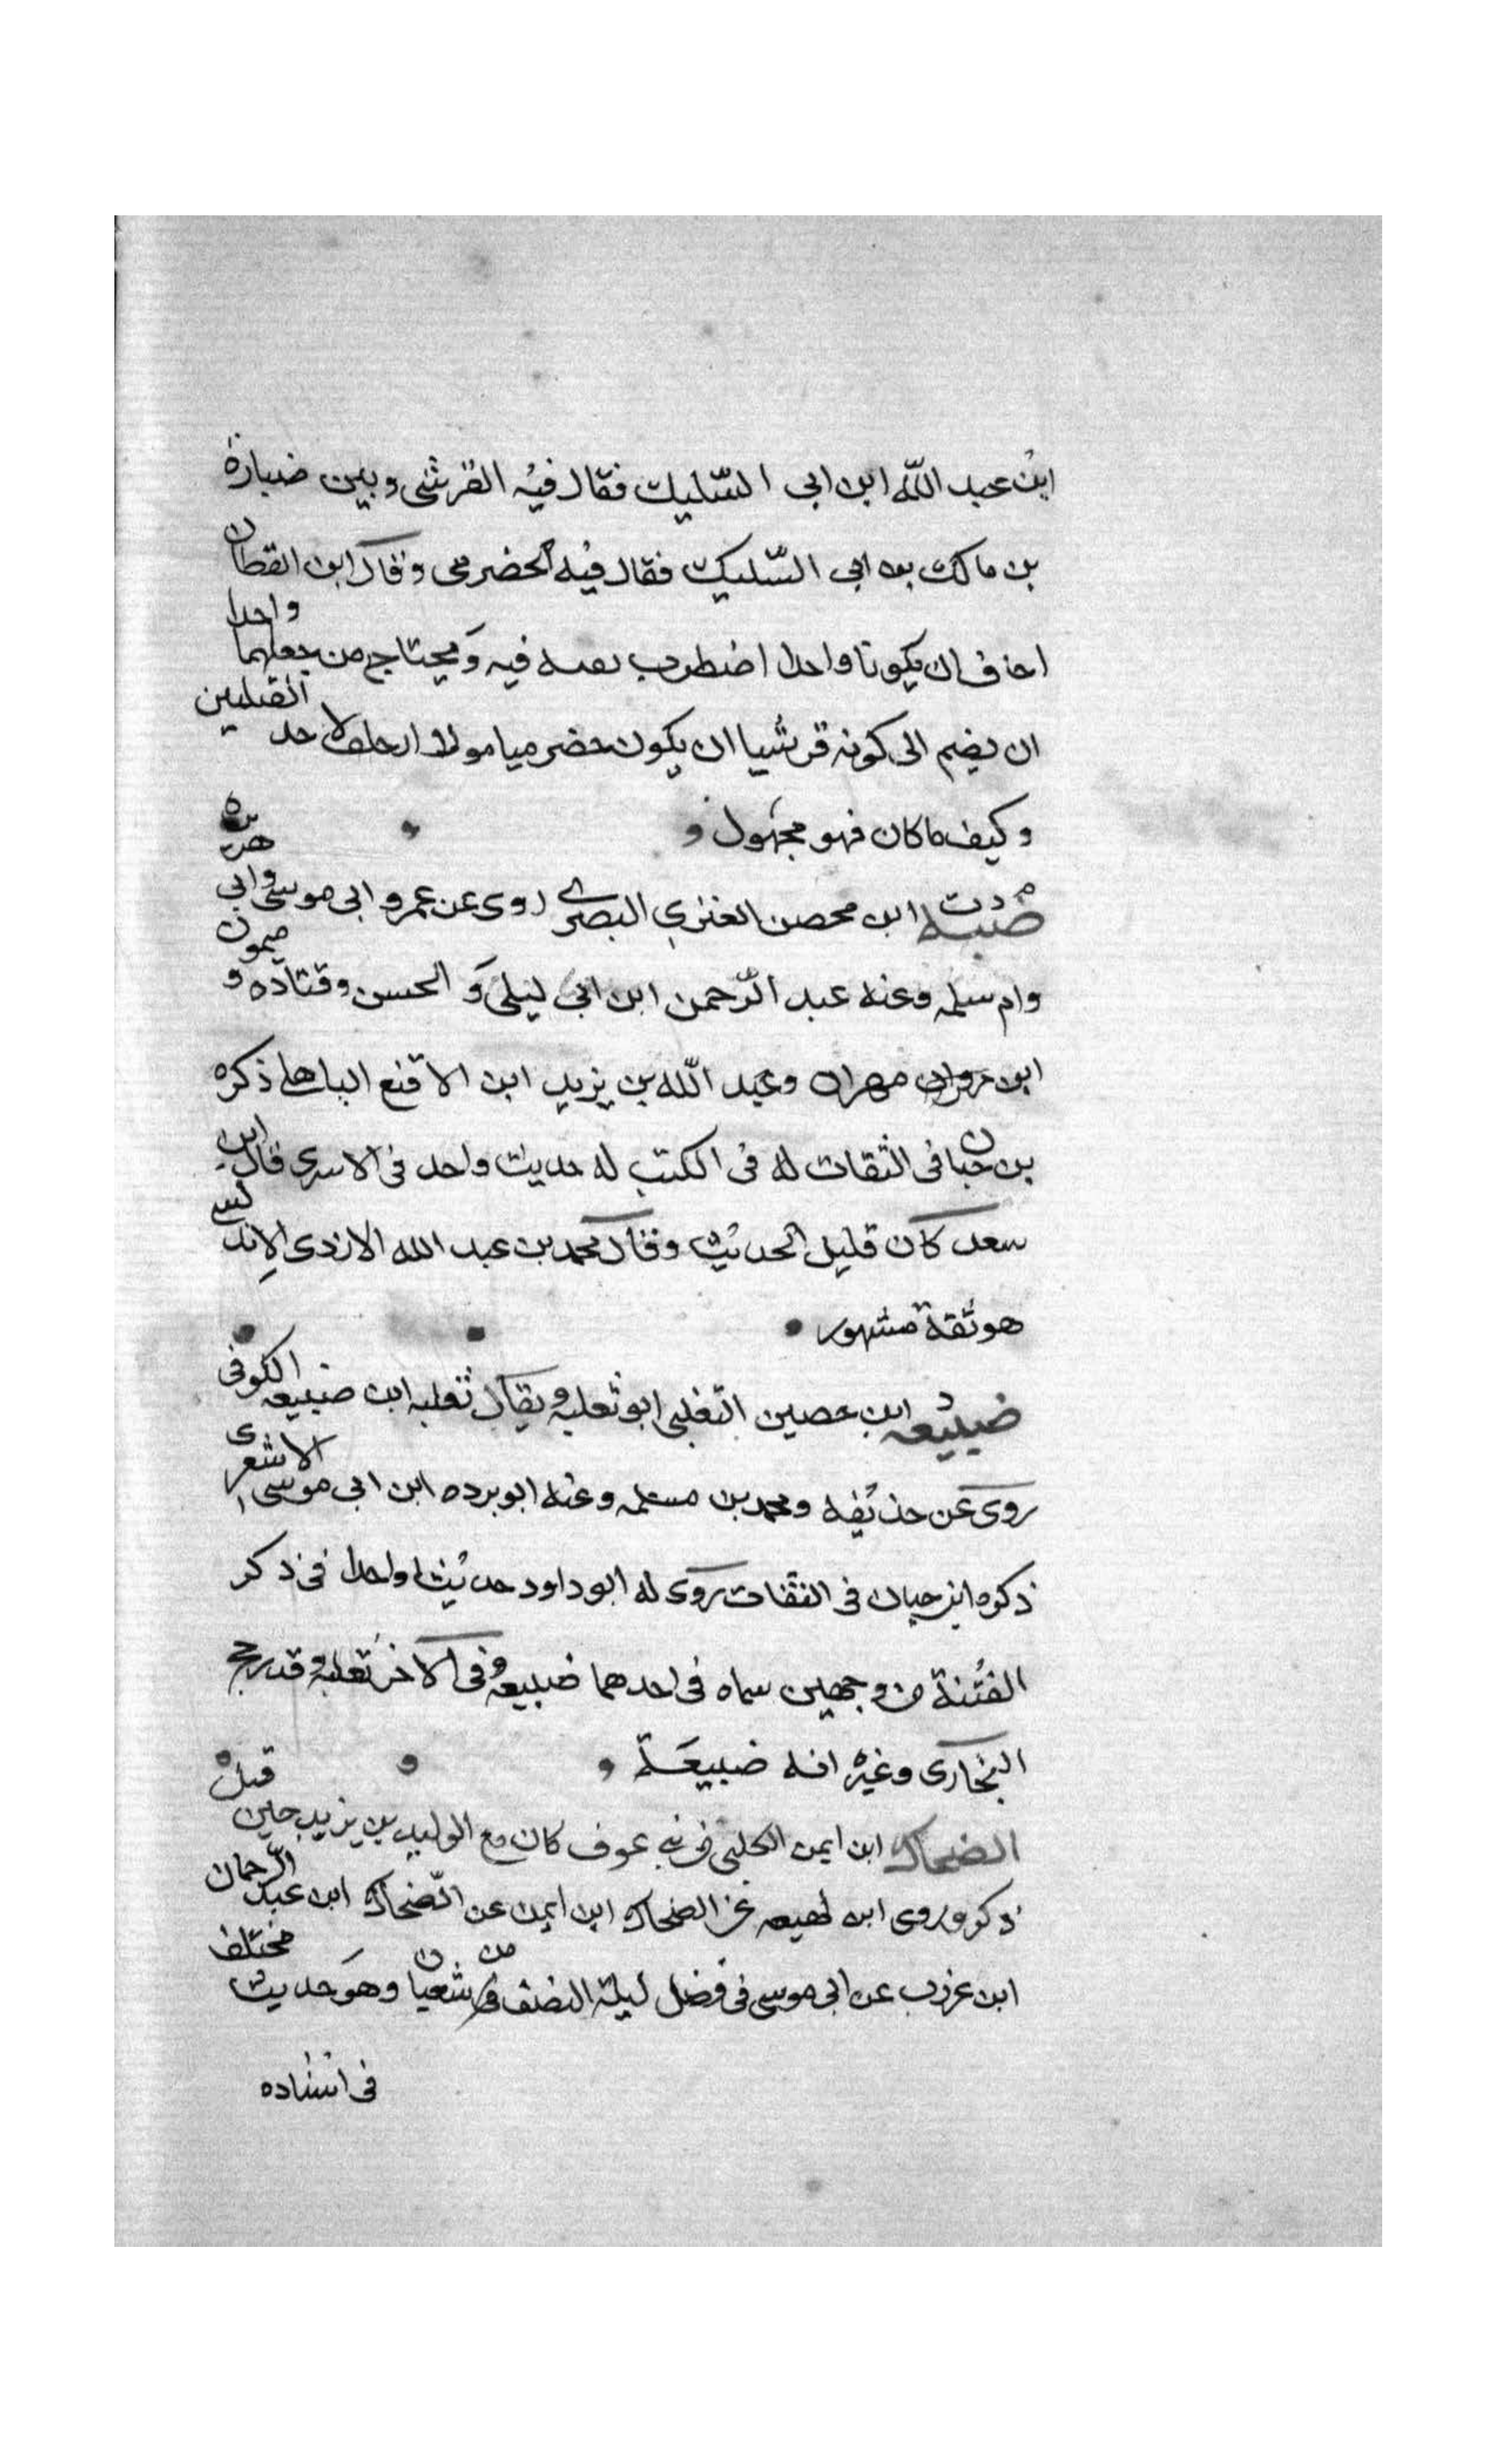 ابن عبد اللّه ابن ابى السّليك فقال فيه القرشى وبين ضبارة
بن مالك بن ابى السّليك فقال فيه الحضرمى وقال ابن القطان
اخاف ان يكونا واحدا اضطرب بعسه فيه ويحتاج من جعلهما واحدا
ان يضم الى كونه قرشيا ان يكون حضرميا مولا او حلفا لاحد القبيلين
وكيف ما كان فهو مجهول
م د ت
ضبة ابن محصن العنزي البصرى روى عن عمر و ابى موسى وابى هريره
وام سلمه وعنه عبد الرّحمن ابن ابى ليلى و الحسن وقتاده و ميمون
ابن مهران وعبد اللّه بن يزيد ابن الاقنع الباهلى ذكره
بن حبان فى الثقات له فى الكتب له حديث واحد فى الاسرى قال ابن
سعد كان قليل الحديث وقال محمد بن عبد الله الازدى الاندلسى
هو ثقة مشهور
د
ضبيعه ابن حصين التغلبى ابو ثعلبه ويقال ثعلبه ابن ضبيعه الكوفى
روى عن حذيفه ومحمد بن مسلمه وعنه ابو برده ابن ابى موسى الاشعرى
ذكره ابن حبان فى الثقات روى له ابو داود حديثا واحدا فى ذكر
الفتنة من وجهين سماه فى احدهما ضبيعه وفى الاخر ثعلبه وقد رجح
البخارى وغيره انه ضبيعة
الضحاك ابن ايمن الكلبى من بنى عوف كان مع الوليد بن يزيد حين قبله
ذكر وروى ابن لهيعه عن الضحاك ابن ايمن عن الضّحاك ابن عبد الرّحمان
ابن عزرب عن ابى موسى فى فضل ليلة النصف من شعبان وهو حديث مختلف
فى اسناده